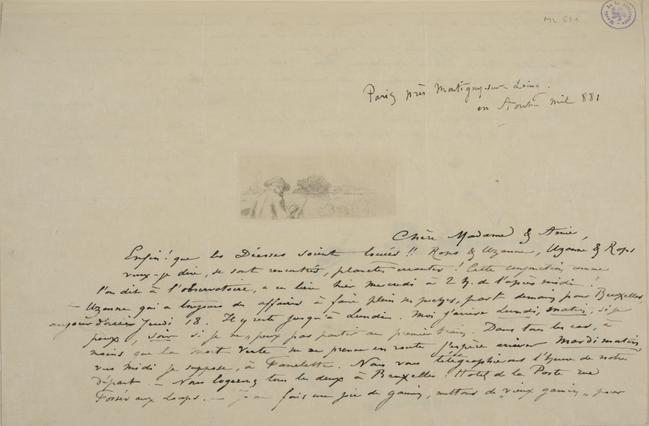 ML 631
Paris près Montigny-sur-Loing.
en Août mil 881
Chère Madame & Amie,
Enfin! que les Déesses soient louées!! Rops & Uzanne, Uzanne & Rops
veux-je dire, se sont rencontrés, planètes errantes! Cette conjonction comme
l'on dit à l'observatoire, a eu lieu hier mercredi à 2 h. de l'après midi.
Uzanne qui a toujours des affaires à faire plein ses poches, part demain pour Bruxelles
aujourd'hui Jeudi 18. Il y reste jusqu'à Lundi. Moi j'arrive Lundi, matin, si je
peux, soir si je ne peux pas partir au premier train. Dans tous les cas, à
moins que la mort verte ne me prenne en route j'espère arriver Mardi matin,
vers midi je suppose, à Famelette. Nous vous télégraphierons l'heure de notre
départ. — Nous logerons tous les deux à Bruxelles: Hotel de la Poste rue
Fossé aux Loups. — je me fais une joie de gamin, mettons de vieux gamin, pour